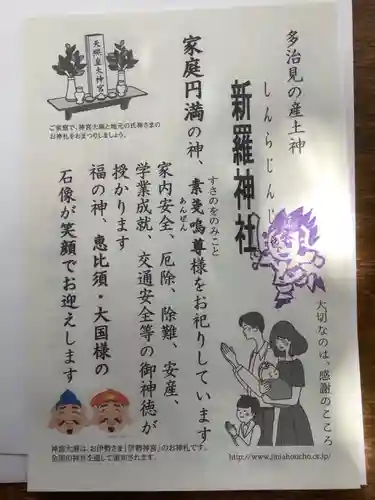 多治見の産土神
しんらじんじ
新羅神社
家庭円満の神、素戔嗚尊様をお祀りしています
すさのをのみこと
家内安全、厄除、除難、安産、
あんざん
学業成就、交通安全等の御神徳が
授かります
福の神、恵比須・大国様の
石像が笑顔でお迎えします
天照皇大神宮
ご家庭で、神宮大麻と地元の氏神さまの
お神札をおまつりしましょう。
大切なのは、感謝のこころ
神宮大麻は、お伊勢さま「伊勢神宮」のお神札です。
全国の神社を通して頒布されます。
http://www.jinjahoncho.or.jp/